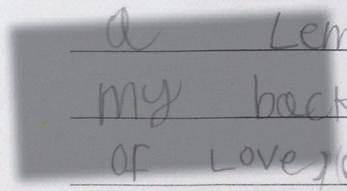 a Lem
my back
of Love